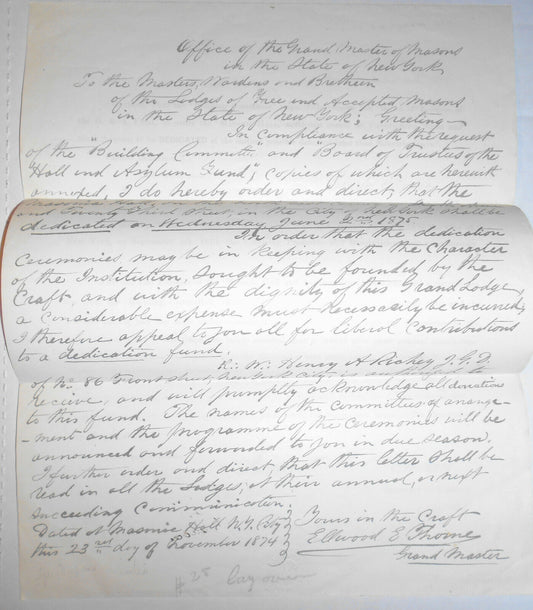 Office of the Grand Master of Masons
in the State of New York,
To the Masters, Wardens and Brethern
of the Lodges of Free and Accepted Masons
in the State of New York; Greeting—
In compliance with the request
of the "Building Committ" and "Board of Trustees of the
"Hall and Asylum Fund", copies of which are herewith
annexed, I do hereby order and direct, that the
and Twenty Third Street, in the City of New York shall be
dedicated on Wednesday June 2nd 1875
In order that the dedication
Ceremonies may be in keeping with the Character
of the Institution, sought to be founded by the
Craft, and with the dignity of this Grand Lodge,
a considerable expense must necessarily be incurred,
I therefore appeal to you all for liberal Contributions
to a dedication fund.
R∴ W∴ Henry A
of No 86 Front Street, New York City is authorized to
recieve, and will promptly acknowledge all donations
to this fund. The names of the Committies of arrange-
-ment and the programme of the Ceremonies will be
announced and forwarded to you in due season.
I further order and direct, that this letter shall be
read in all the Lodges, at their annual, or next
succeeding Communication.
Dated at Masonic Hall N.Y. City
this 23rd day of November 1874
Yours in the Craft
Ellwood E Thorne
Grand Master
# 28